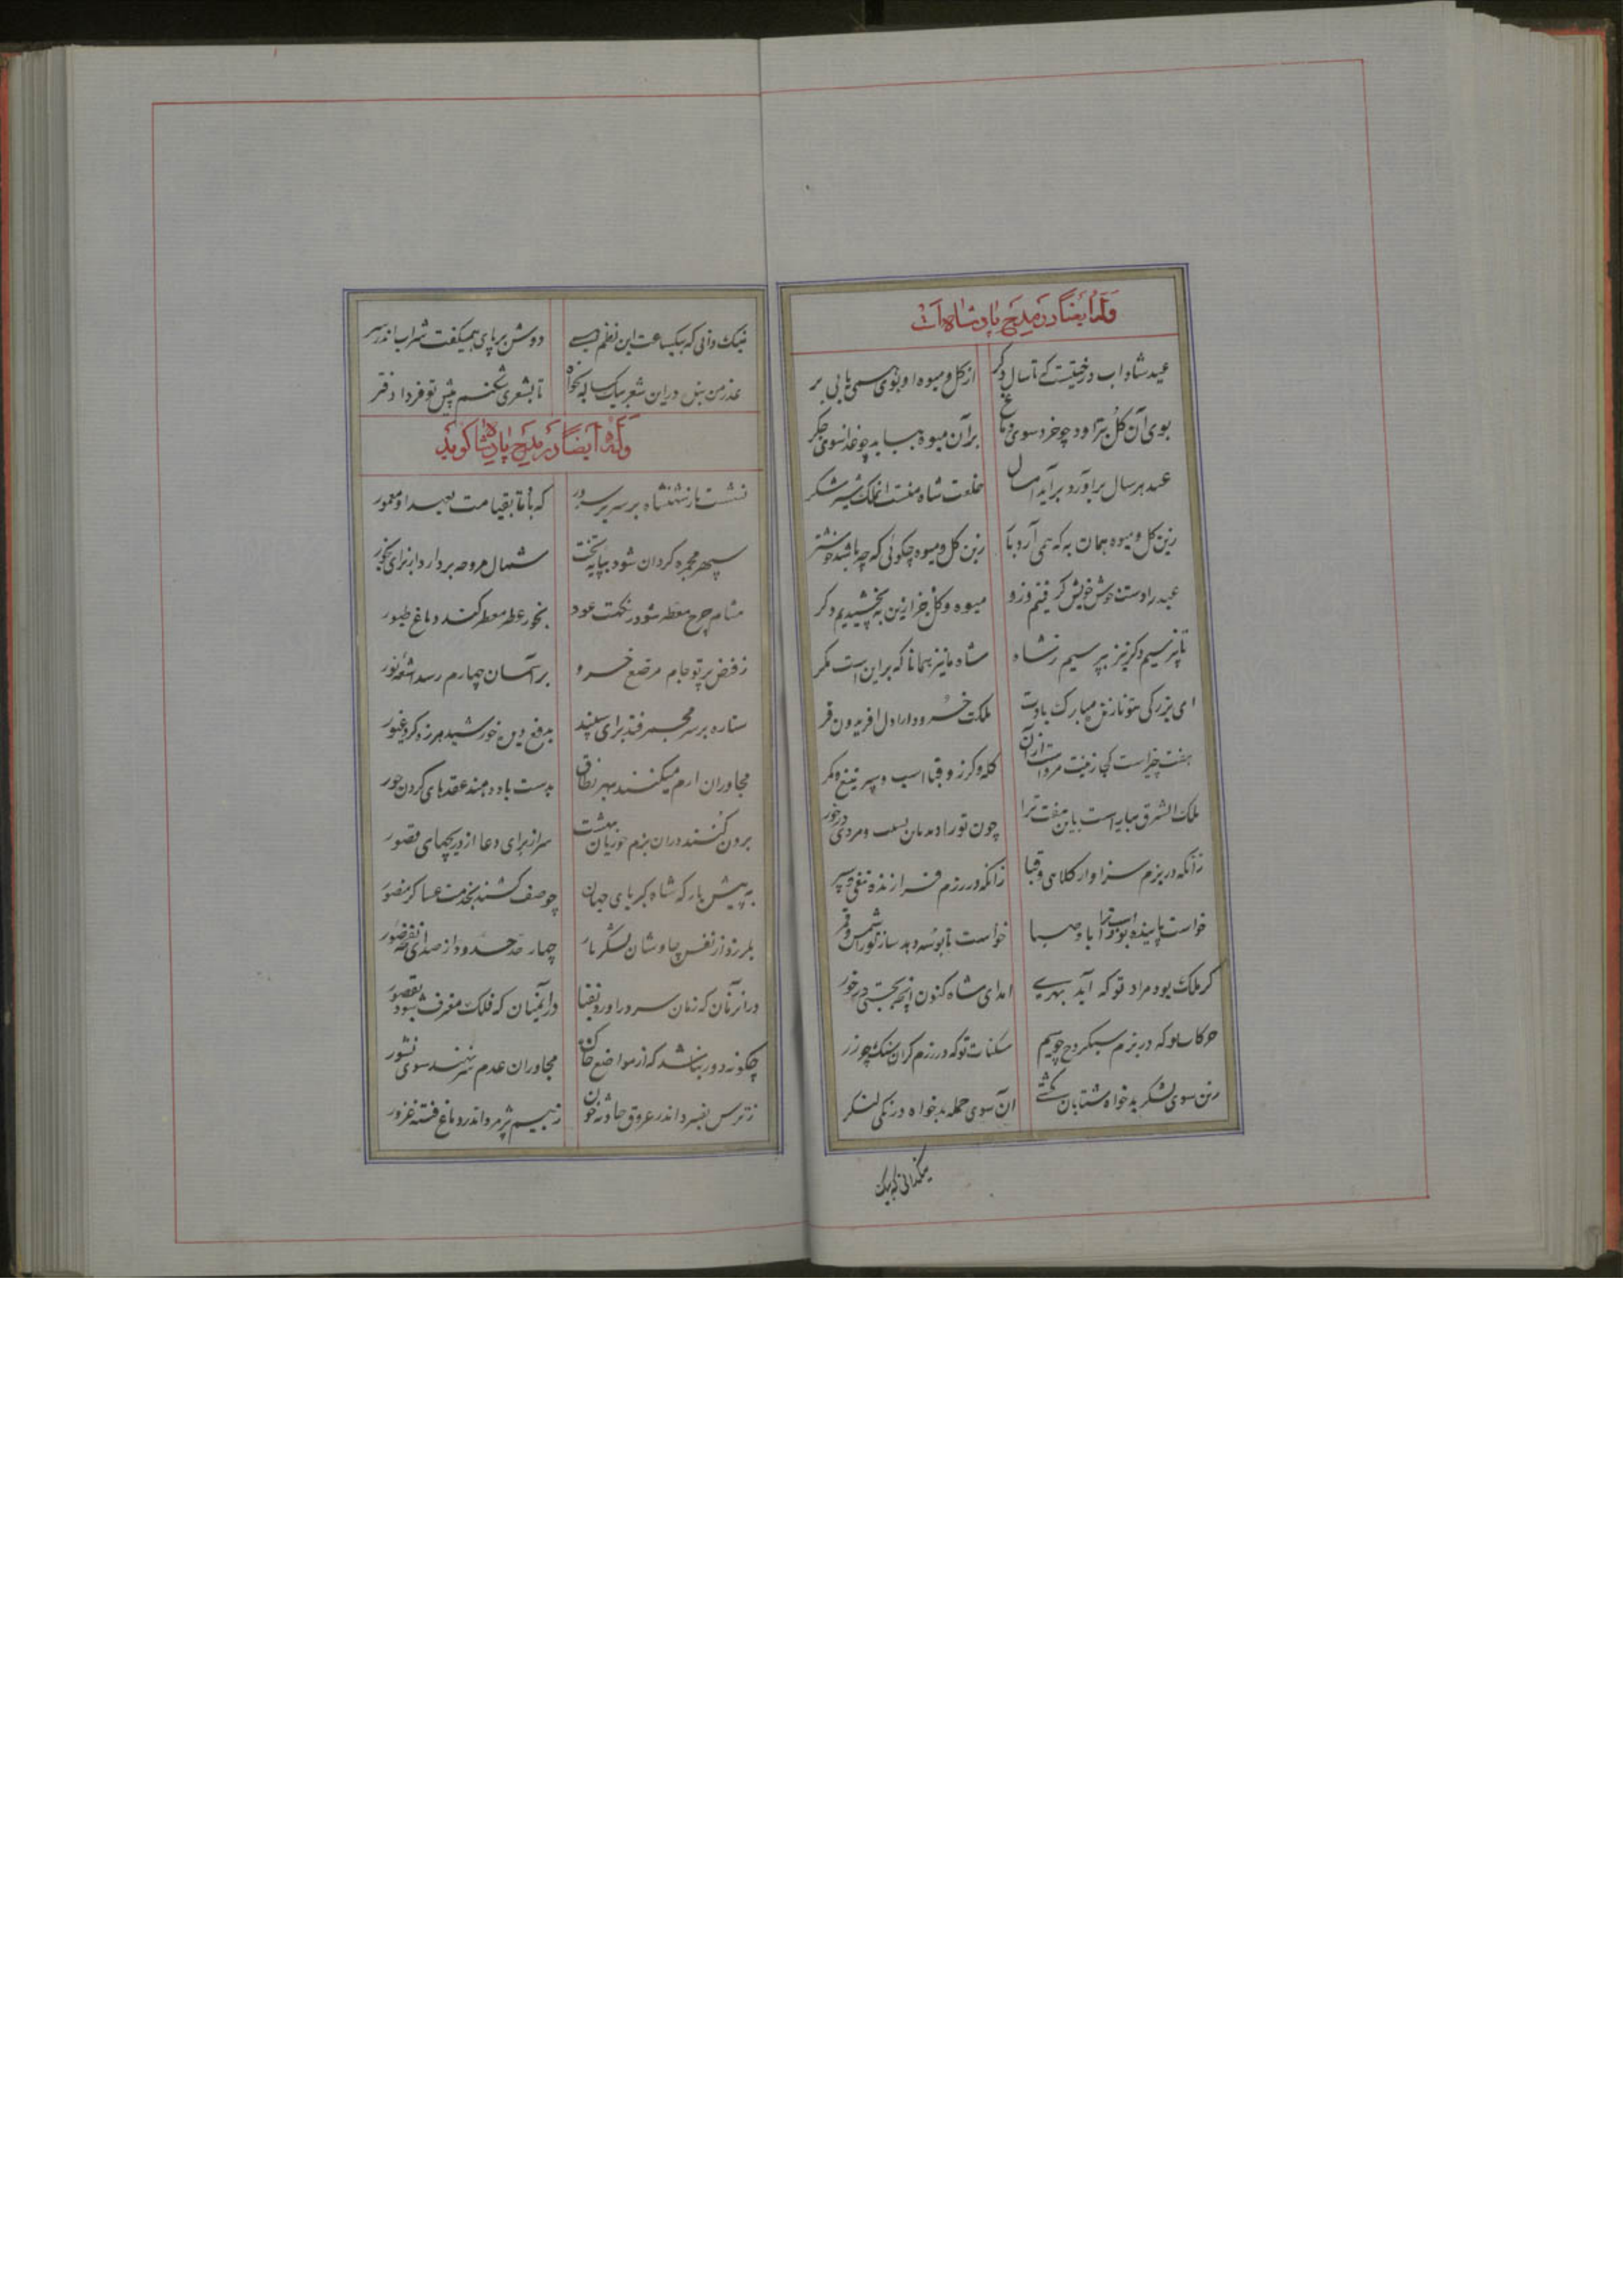 وله ایضا در مدیح پادشاه است
عید شاداب درختیست که تا سال دگر از گل و میوه او بوی همی یابی بر
بوی آن گل بتراود چو خرد سوی دماغ بر آن میوه بیاید چو غذا سوی جگر
عید هر سال برآورد برآید امسال خلعت شاه
زین گل و میوه همان به که همی آرد بار زین گل و میوه چگوئی که چه باشد خوشتر
عید را دست خوش خویش گرفتیم و زو میوه و گل جز ازین به نچشیدیم دگر
تا نپرسیم دگر نیز بپرسیم ز شاه شاه ما نیز همانا که بر این است مگر
ای بزرگی بتو نازنده مبارک بادت ملکت خسرو و دارا دل افریدون فر
هفت چیز است کجا زینت مردان کله و گرز و قبا اسب و سپر تیغ و کمر
ملک الشرق بیاراست باین هفت ترا چون تو را دید و مردی در خور
زانکه در بزم سزاوار کلاهی و قبا زانکه در رزم فرازنده تیغی و سپر
خواست باد صبا خواست تا بوسه دهد شمس و قمر
گر ملک بود مراد تو که آید بهری شاه کنون در خور
حرکات تو که در بزم سبکروح چو سیم سکنات تو که در رزم گران سنگ چو زر
زین سوی لشکر بدخواه شتابان کشتی آن سوی حمله بدخواه درنگی لنگر
نیک دانی که بیکساعت این نظم دوش بر پای همیگفت شراب اندر سر
عذر من در این شعر تا بشعری شکنم پیش تو فردا دفتر
وله ایضا در مدیح پادشاه گوید
نشست باز شهنشاه بر سریر سرور که باد تا بقیامت بعهد او معمور
سپهر مجمره گردان شود بپایه تخت شمال مروحه بردارد از برای بخور
مشام چرخ معطر شود ز نکهت عود بخور عطر معطر کند دماغ طیور
ز فیض پرتو جام مرصع خسرو بر آسمان چهارم رسد اشعه نور
ستاره بر سر مجمر فتد برای سپند
مجاوران ارم میکنند بهر نطاق بدست باد دهند عقدهای گردن حور
برون کنند در ان بزم حوریان بهشت سر از برای دعا از دریچهای قصور
به پیش بارگه شاه کبریای جهان چو صف کشند بخدمت عساکر منصور
بلرزد از نفس چاوشان لشکر بار چهار حد حدود از صدای نفخه صور
در آن زمان که زمان سر در اورد بقفا در آن میان که فلک معترف شود بقصور
چگونه دور نباشد که از مواضع مجاوران عدم سر نهند سوی نشور
ز ترس بفسرد اندر عروق حادثه خون ز بیم پژمرد اندر دماغ فتنه غرور